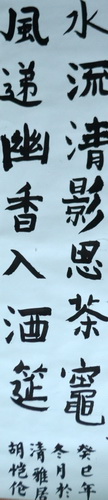 水流清影思茶竈
風递幽香入酒筵
癸巳年
冬月於
清雅居
胡恺伦